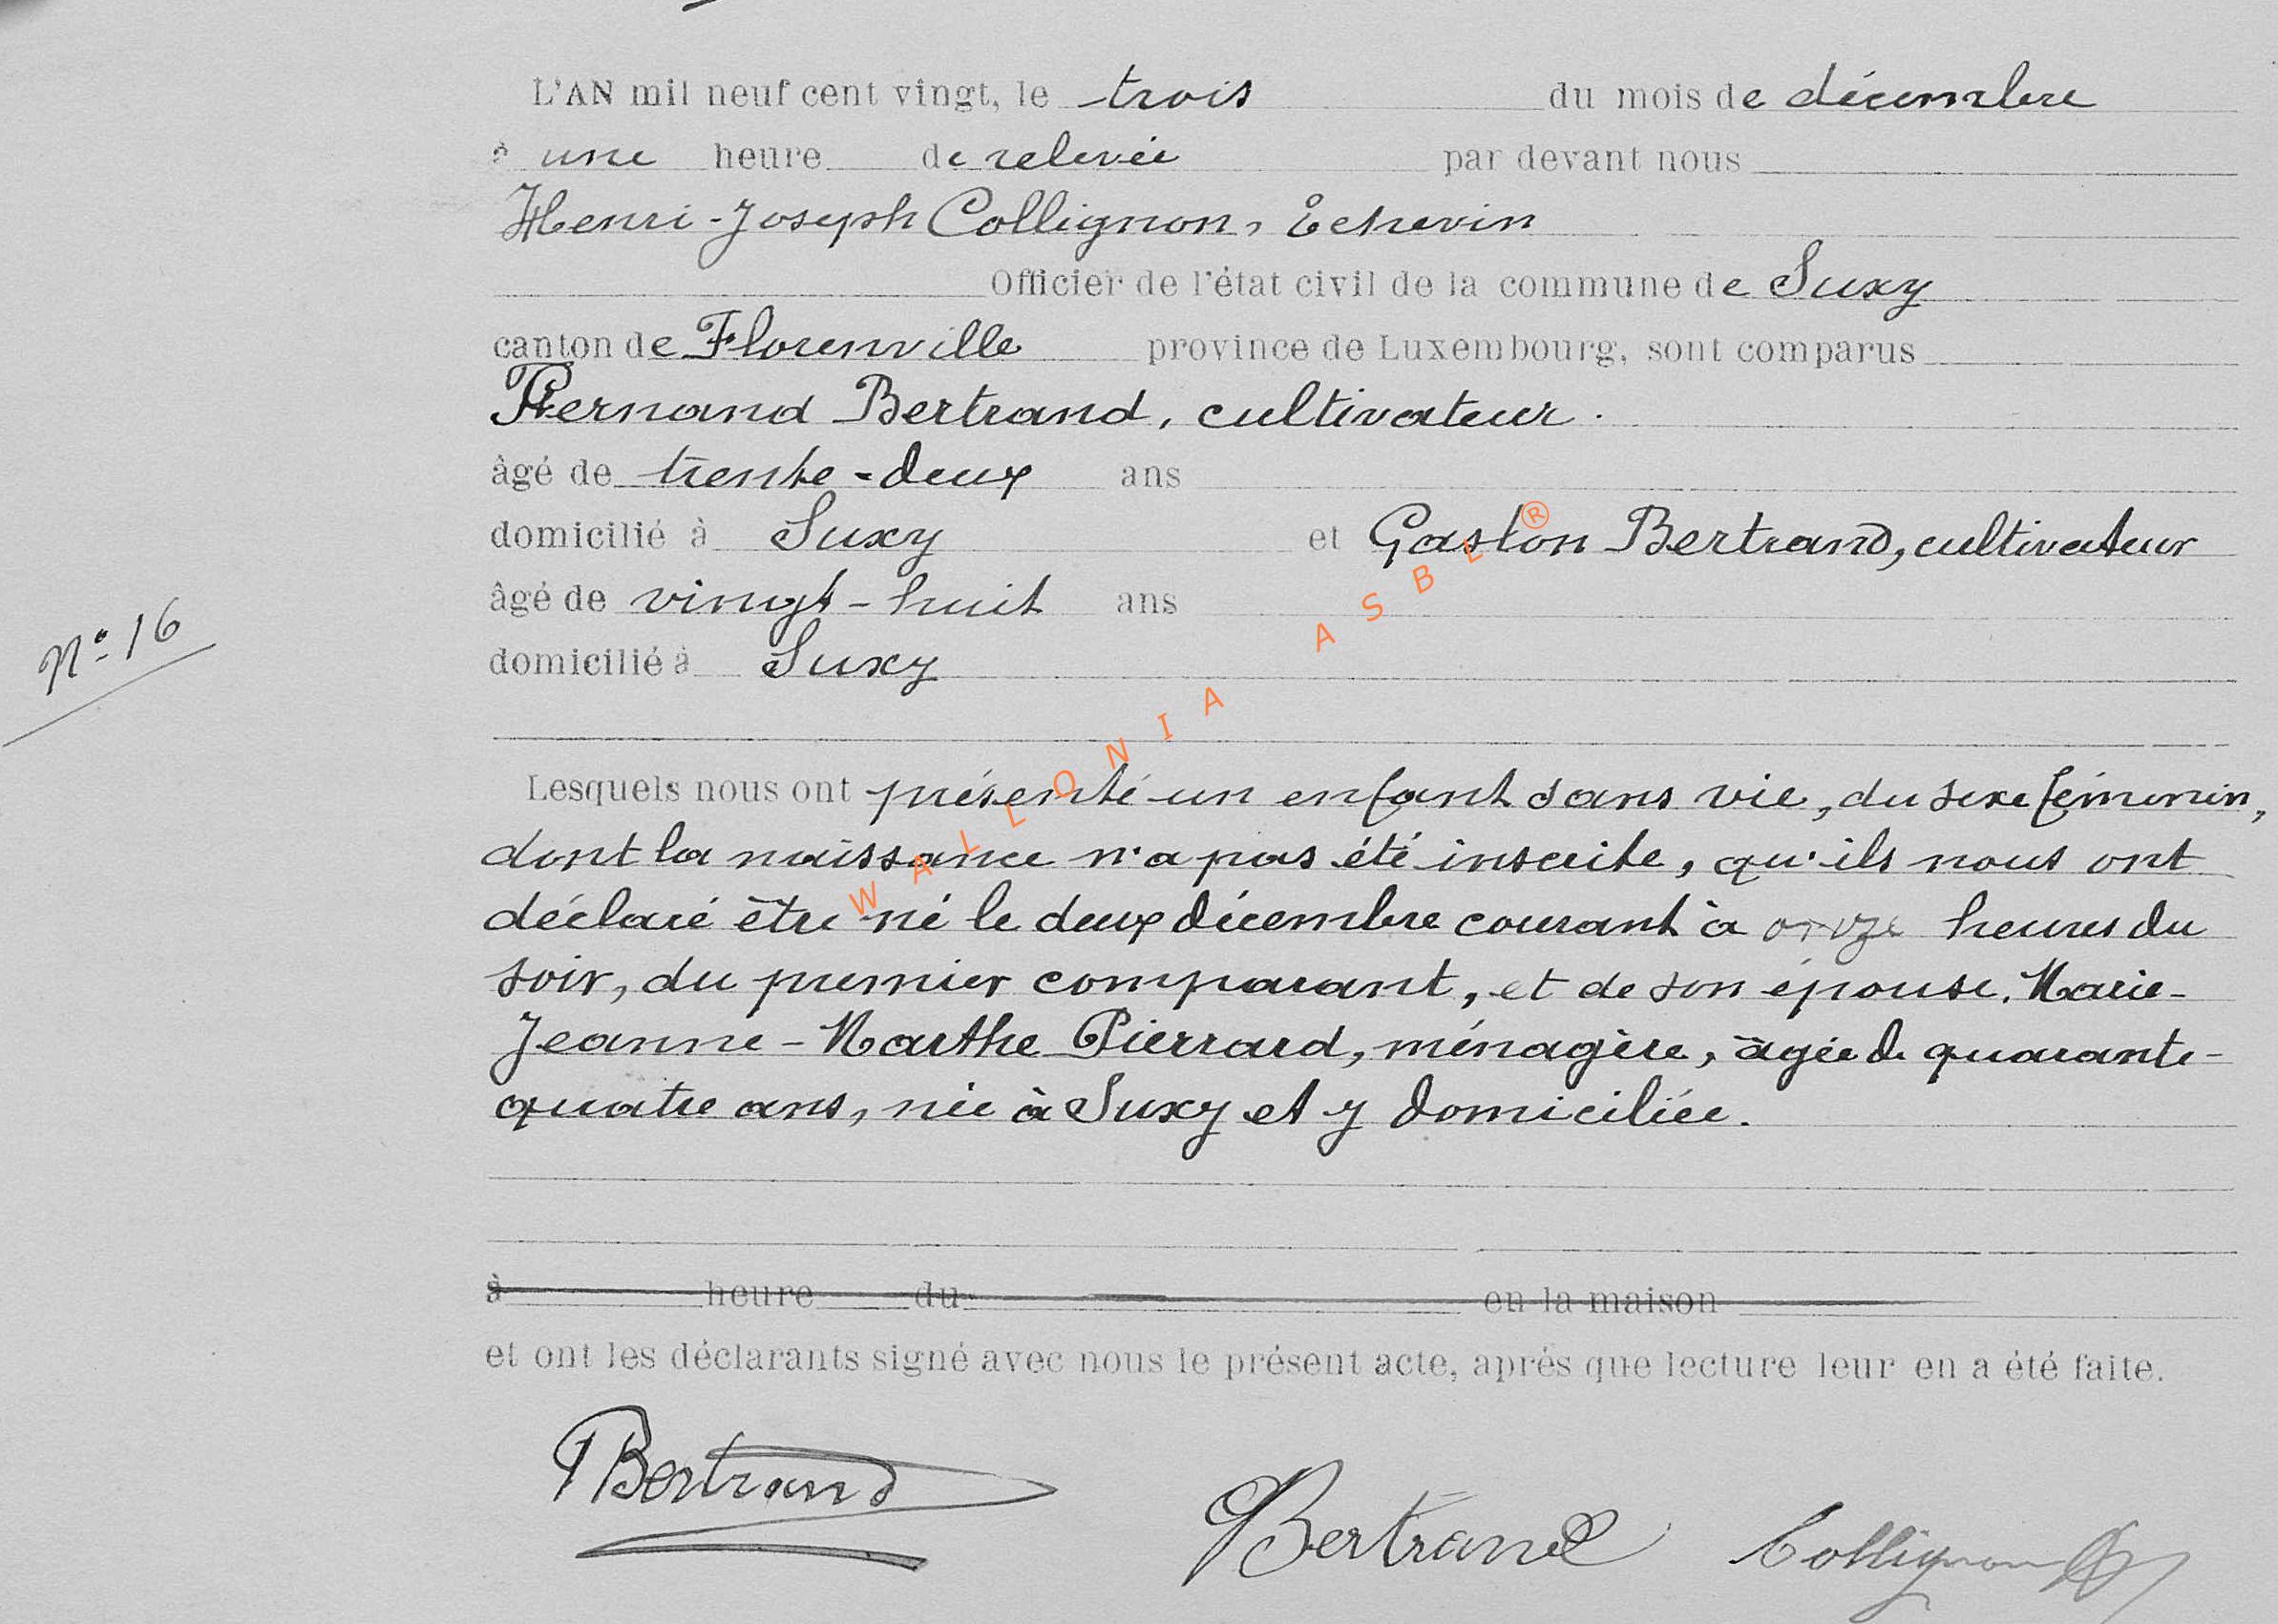 L'AN mil neuf cent vingt, le trois du mois de décembre
à une heure de relevée par devant nous
Henri-Joseph Collignon, Echevin
Officier de l'état civil de la commune de Suxy
canton de Florenville province de Luxembourg, sont comparus
Fernand Bertrand, cultivateur.
âgé de trente-deux ans
domicilié à Suxy et Gaston Bertrand, cultivateur
âgé de vingt-huit ans
N° 16
domicilié à Suxy
WALLONIA ASBL®
Lesquels nous ont présenté un enfant sans vie, du sexe féminin,
dont la naissance n'a pas été inscrite, qu'ils nous ont
déclaré être né le deux décembre courant à onze heures du
soir, du premier comparant, et de son épouse, Marie-
Jeanne-Marthe Pierrard, ménagère, âgée de quarante-
quatre ans, née à Suxy et y domiciliée.
à heure du en la maison
et ont les déclarants signé avec nous le présent acte, après que lecture leur en a été faite.
Bertrand
Bertrand Collignon